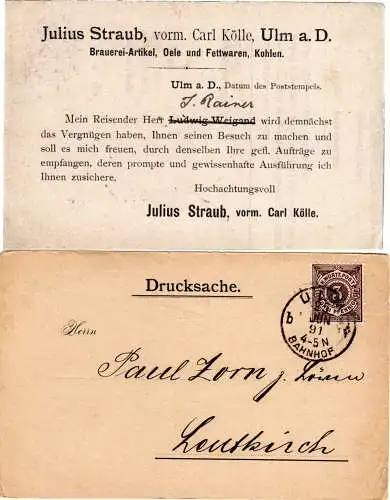 Julius Straub, vorm. Carl Kölle, Ulm a. D.
Brauerei-Artikel, Oele und Fettwaren, Kohlen.
Ulm a. D., Datum des Poststempels.
J. Rainer
Mein Reisender Herr Ludwig Weigand wird demnächst
das Vergnügen haben, Ihnen seinen Besuch zu machen und
soll es mich freuen, durch denselben Ihre gefl. Aufträge zu
empfangen, deren prompte und gewissenhafte Ausführung ich
Ihnen zusichere.
Hochachtungsvoll
Julius Straub, vorm. Carl Kölle.
Drucksache.
Herrn
Paul Zorn z. Löwen
Leutkirch
ULM
b
JUN
91
4-5 N
BAHNHOF
3